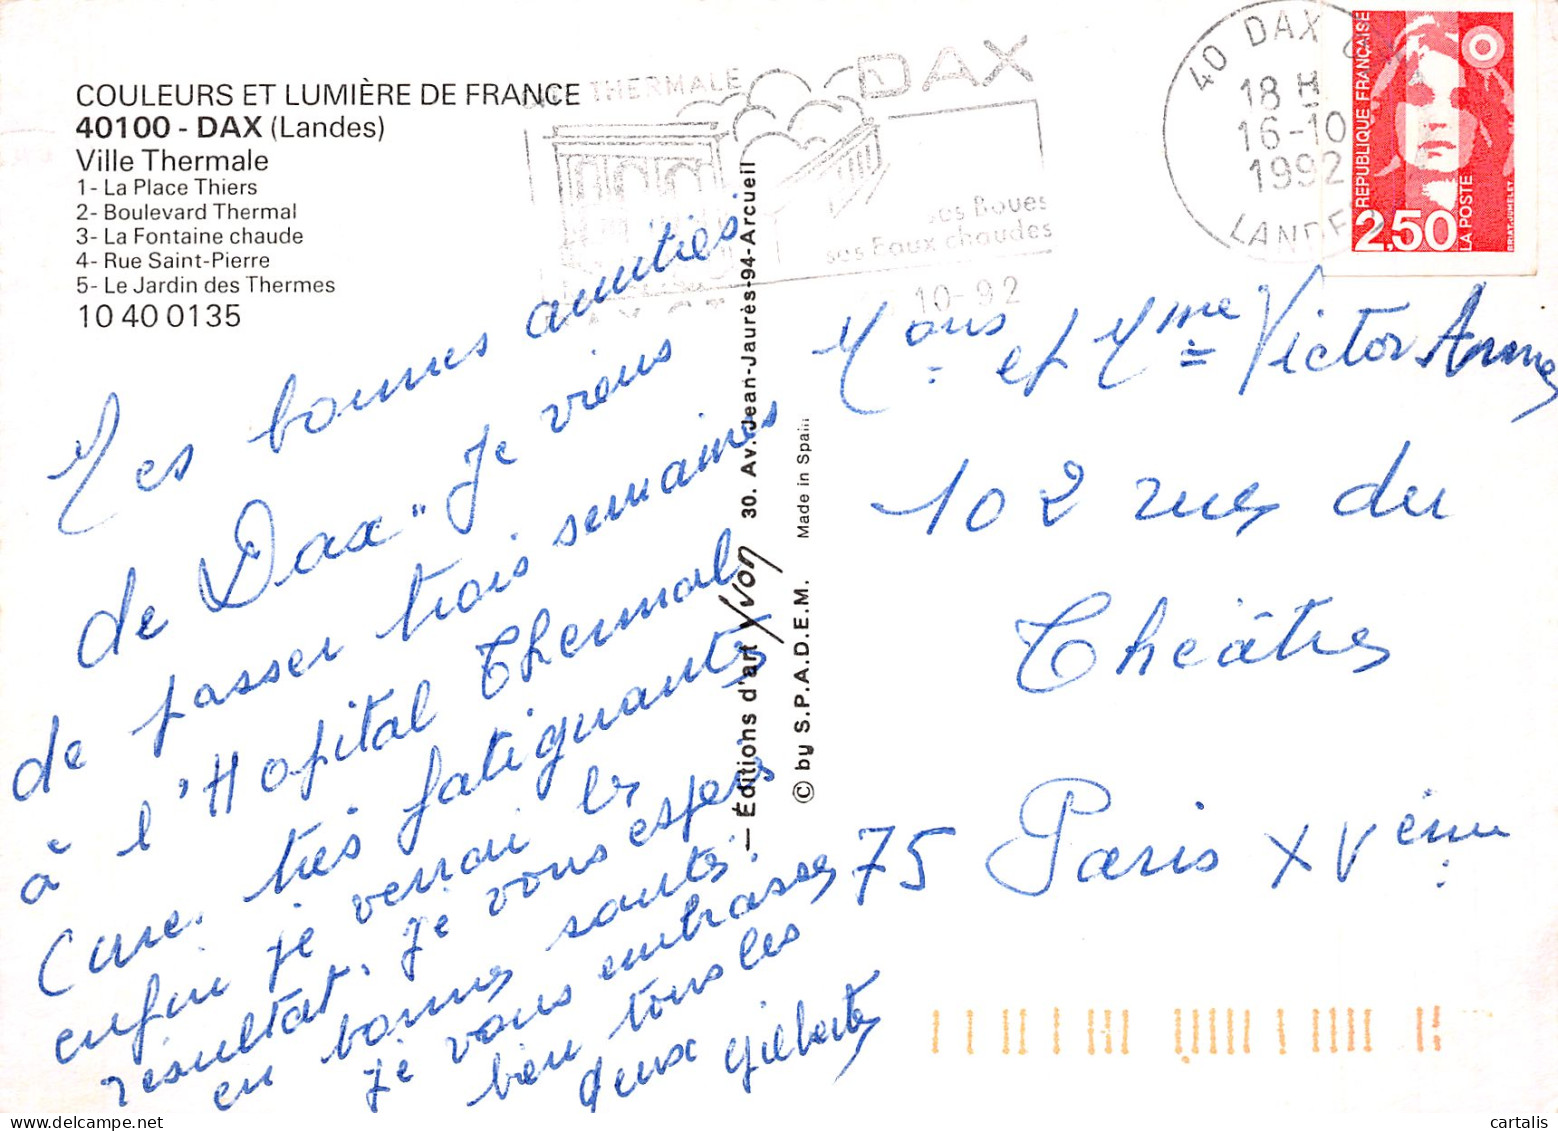 COULEURS ET LUMIÈRE DE FRANCE
40100 - DAX (Landes)
Ville Thermale
1- La Place Thiers
2- Boulevard Thermal
3- La Fontaine chaude
4- Rue Saint-Pierre
5- Le Jardin des Thermes
10 40 0135
THERMALE
DAX
ses Boues
ses Eaux chaudes
10-92
40 DAX
18 H
16-10
1992
LANDES
REPUBLIQUE FRANÇAISE
2,50
LA POSTE
BRIAT-JUMELET
Mes bonnes amitiés
de Dax" Je viens
de passer trois semaines
à l'Hopital Thermal
Cure. très fatiguante
enfin je verrai le
résultat. Je vous espère
en bonnes santés.
Je vous embrasse
bien tous les
deux Gilberte
— Éditions d'art Yvon 30. Av. Jean-Jaurès-94-Arcueil
© by S.P.A.D.E.M. Made in Spain
Mons et Mme Victor
102 rues du
Théâtre
75 Paris XVème
cartalis